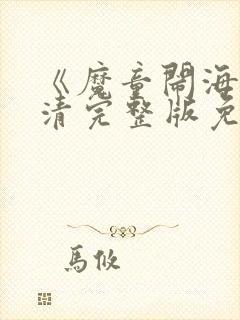 《魔童鬧海
清完整版免
馬攸